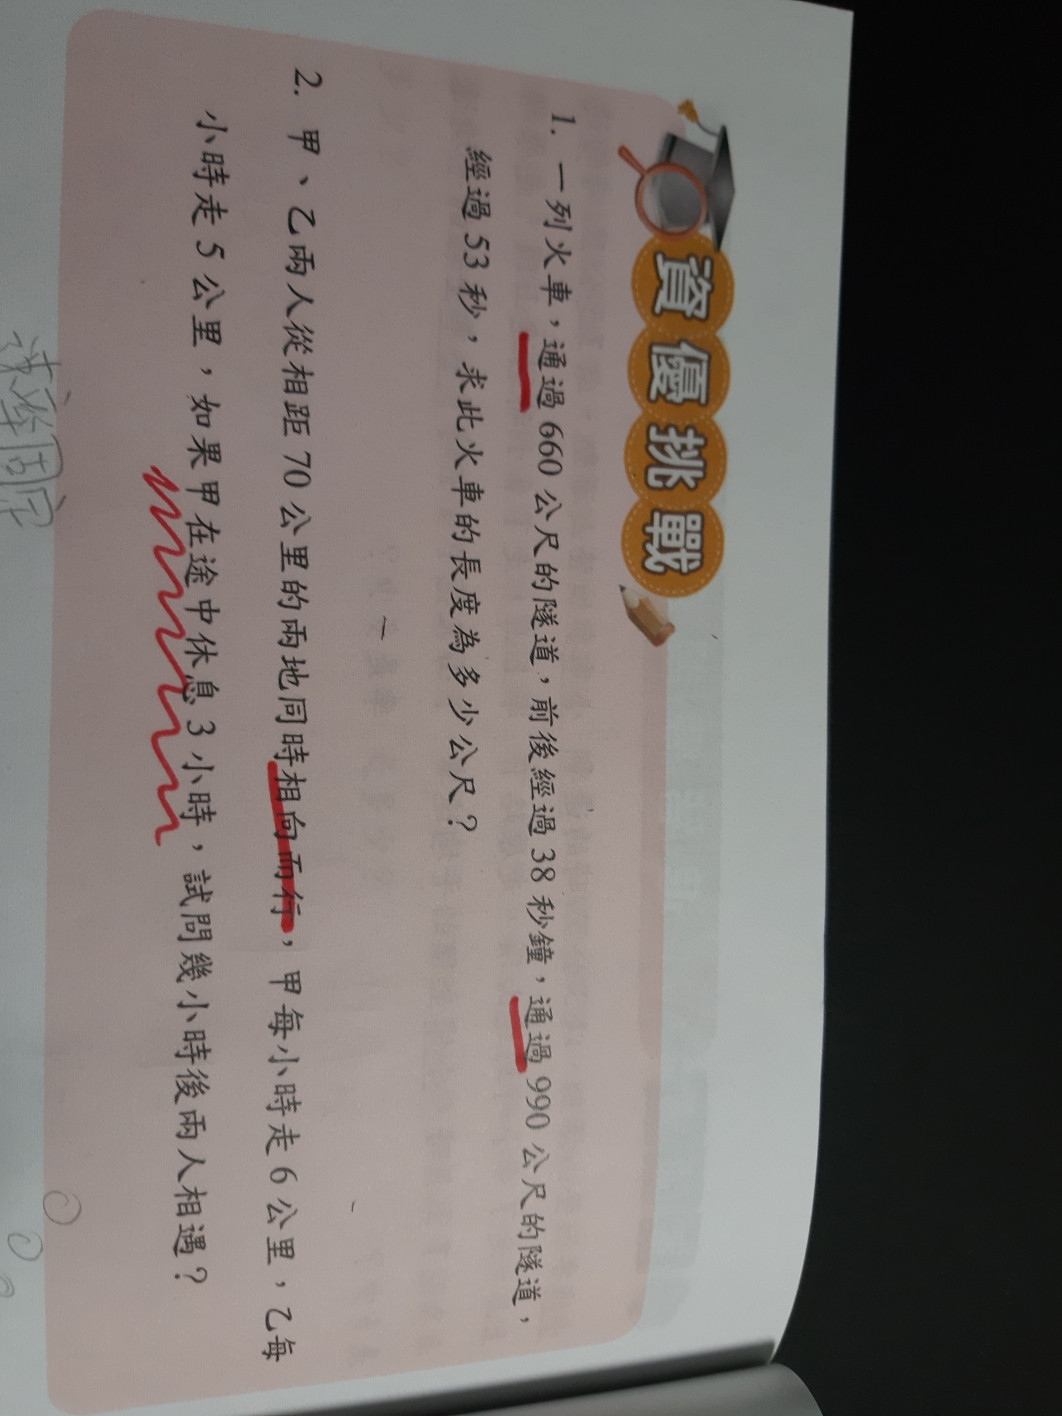 資優挑戰
1. 一列火車，通過 660 公尺的隧道，前後經過 38 秒鐘，通過 990 公尺的隧道，
經過 53 秒，求此火車的長度為多少公尺？
2. 甲、乙兩人從相距 70 公里的兩地同時相向而行，甲每小時走 6 公里，乙每
小時走 5 公里，如果甲在途中休息 3 小時，試問幾小時後兩人相遇？